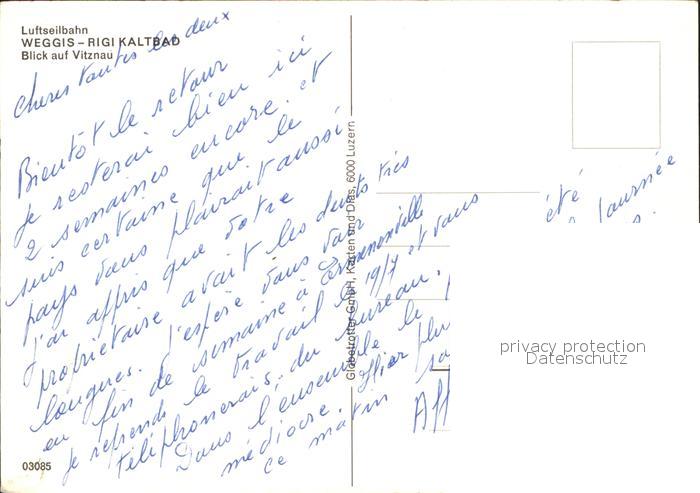 Luftseilbahn
WEGGIS – RIGI KALTBAD
Blick auf Vitznau
Cheres tantes les deux
Bientôt le retour
je resterai bien ici
2 semaines encore. et
suis certaine que le
pays vous plairait aussi
J'ai appris que votre
propriétaire avait les dents très
longues. J'espère vous voir
en fin de semaine à Ermenonville
Je reprends le travail le 19/7 et vous
téléphonerais du bureau.
Dans l'ensemble le
médiocre. Hier plu
ce matin
été
journée
Aff
Globetrotter GmbH, Karten und Dias, 6000 Luzern
privacy protection
Datenschutz
03085